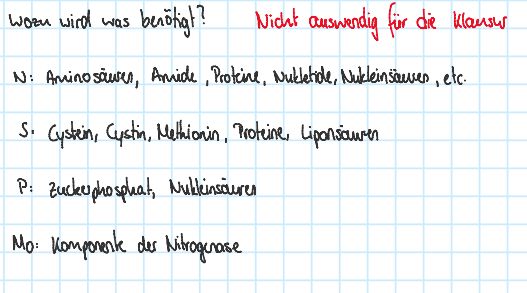 Wozu wird was benötigt? Nicht auswendig für die Klausur
N: Aminosäuren, Amide, Proteine, Nukletide, Nukleinsäuren, etc.
S: Cystein, Cystin, Methionin, Proteine, Liponsäuren
P: Zuckerphosphat, Nukleinsäuren
Mo: Komponente der Nitrogenase